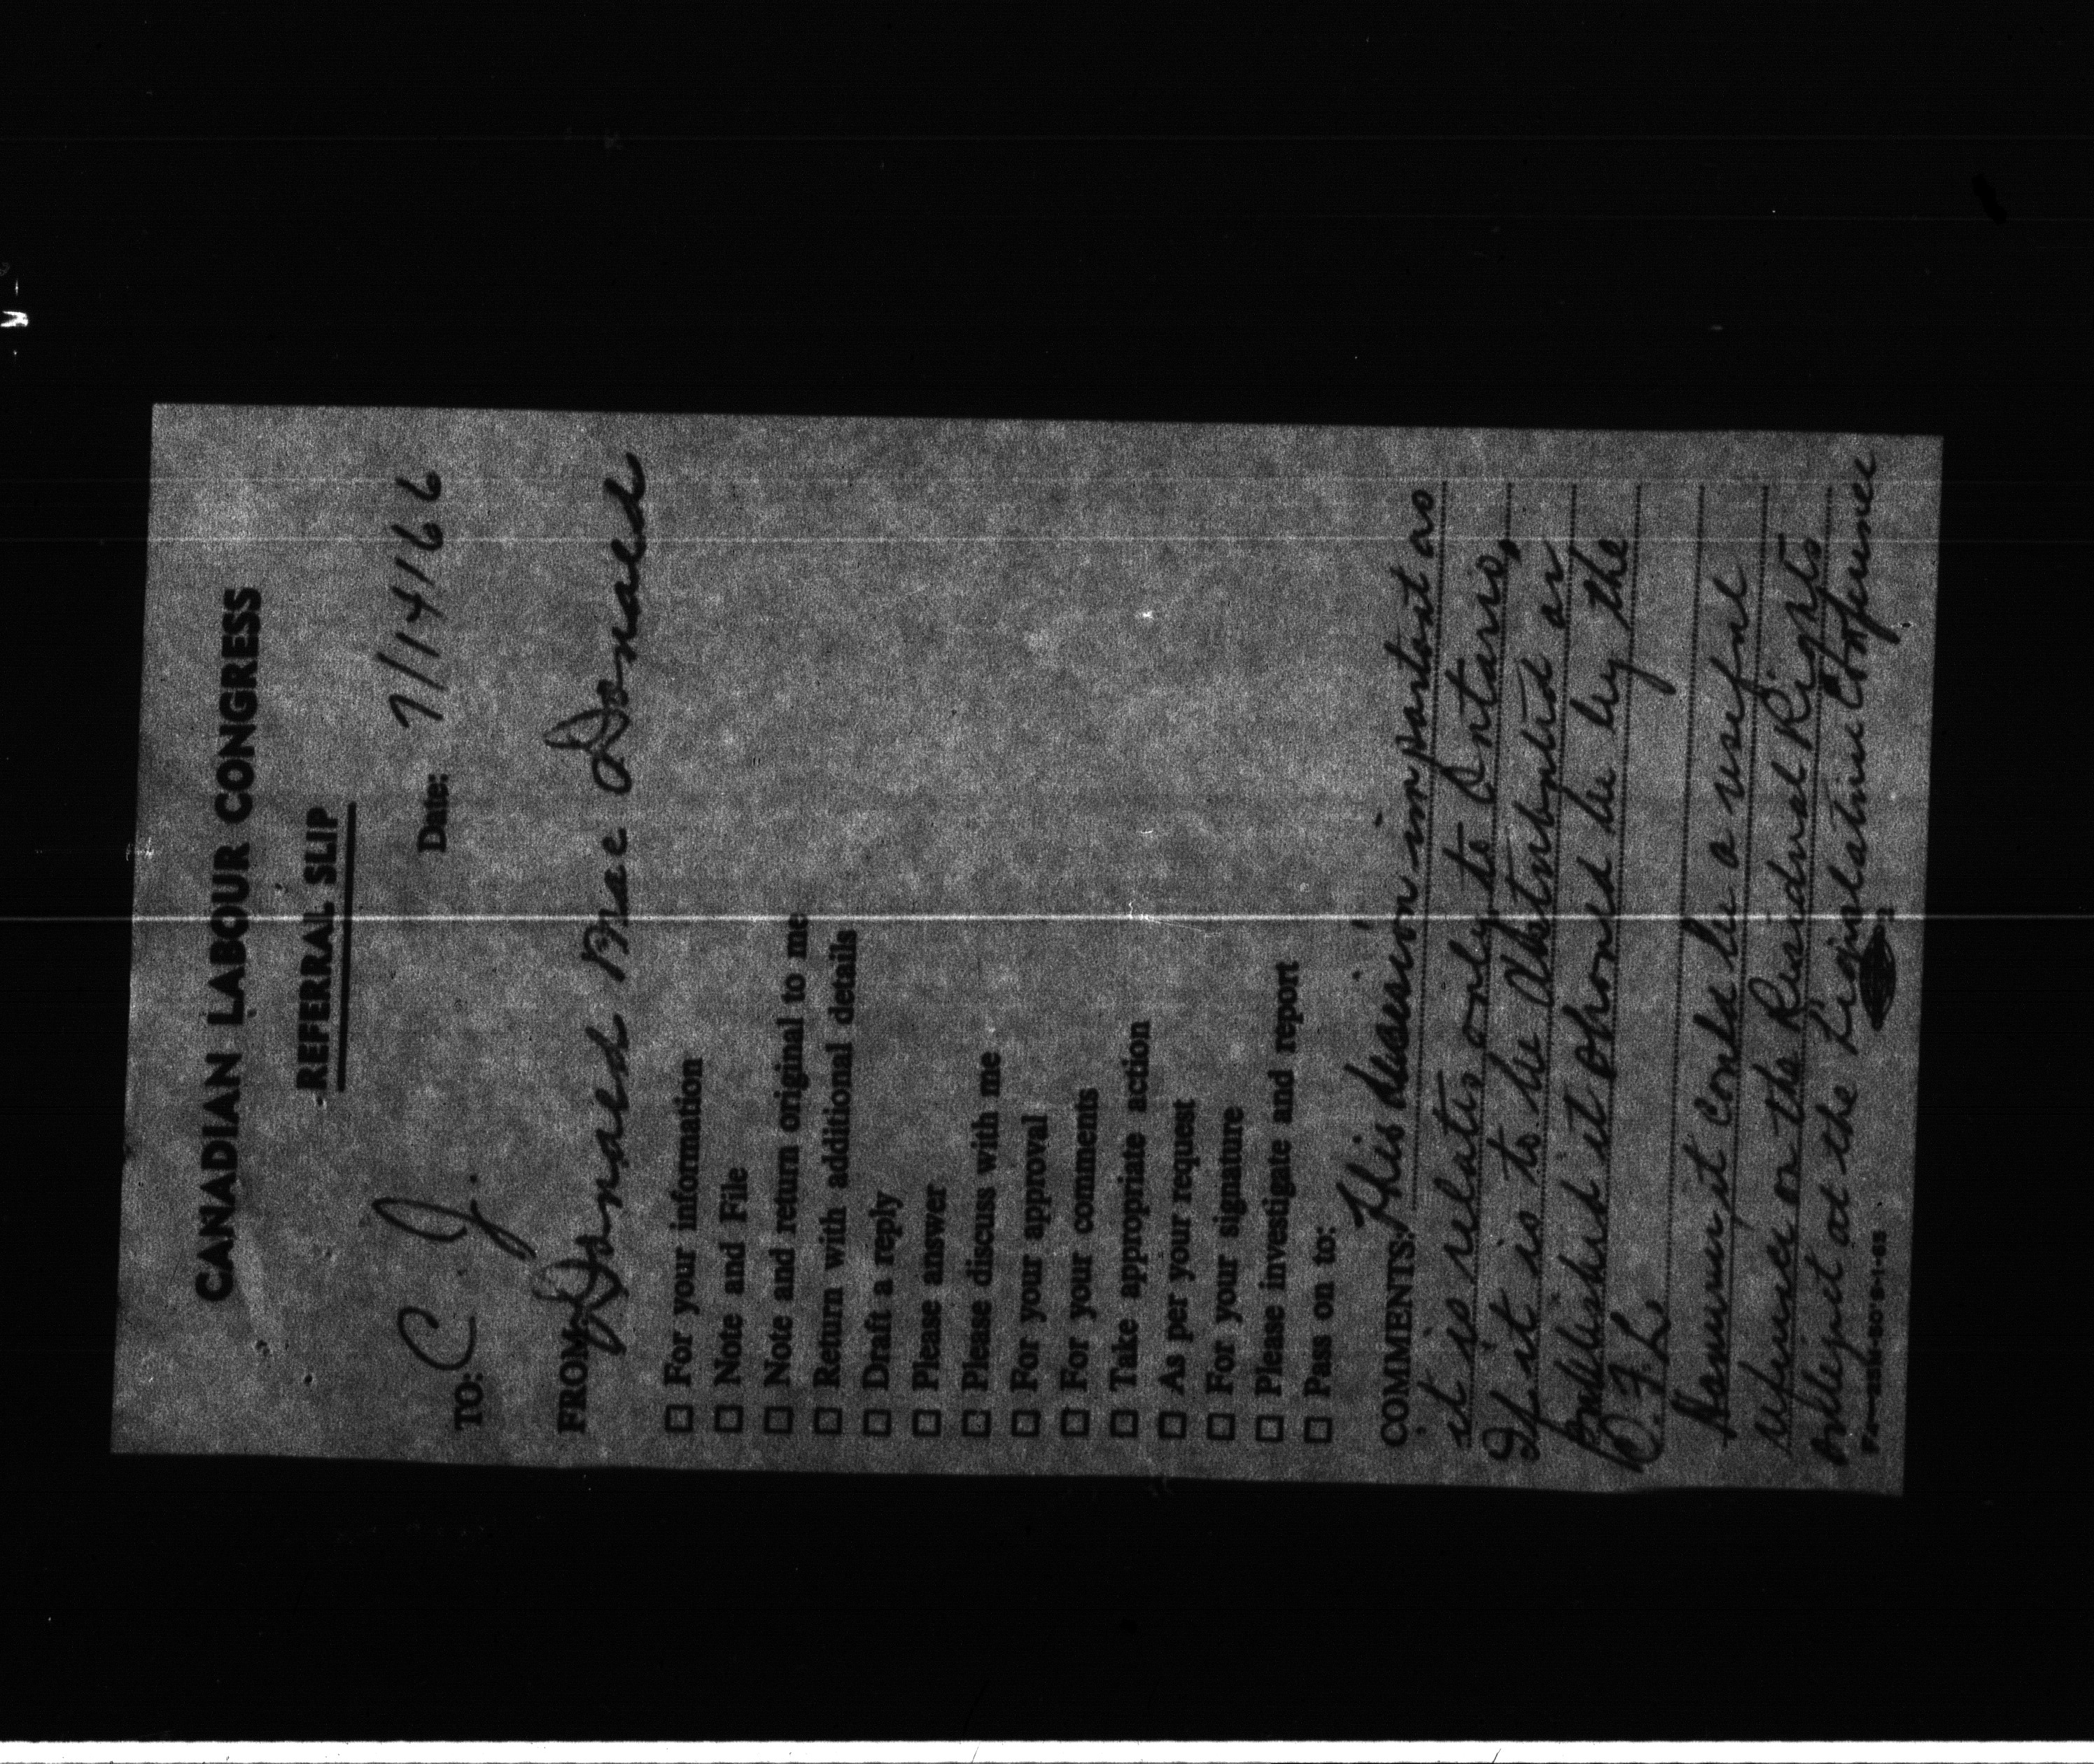 CANADIAN LABOUR CONGRESS
REFERRAL SLIP
TO: C J. Date: 7/14/66
FROM: Donald MacDonald
☐ For your information
☐ Note and File
☐ Note and return original to me
☐ Return with additional details
☐ Draft a reply
☐ Please answer
☐ Please discuss with me
☐ For your approval
☐ For your comments
☐ Take appropriate action
☐ As per your request
☐ For your signature
☐ Please investigate and report
☐ Pass on to:
COMMENTS: This decision important as
it is relates only to Ontario,
If it is to be distributed or
Published it should be by the
O.F.L.
However it could be a useful
reference on the Residual Rights
subject at the Legislative Conference